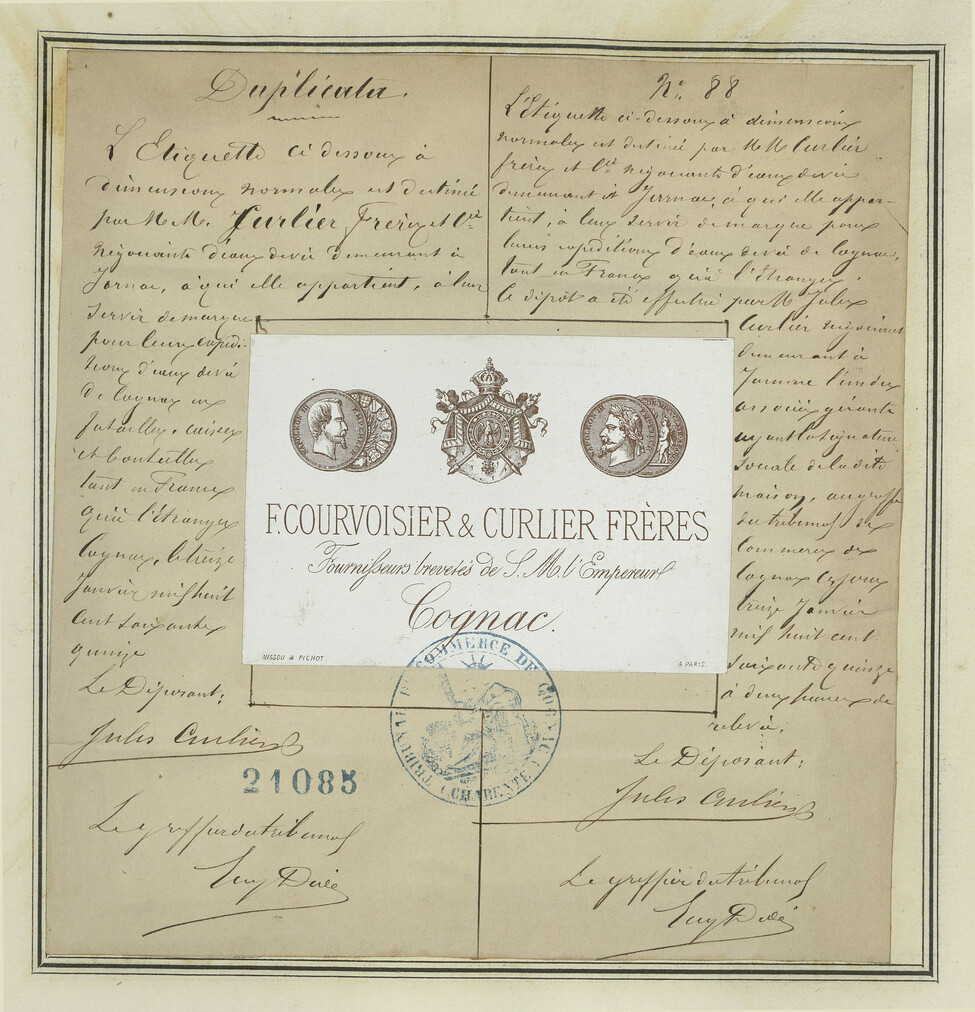 Duplicata.
L'Etiquette ci dessous à
dimensions normales est destinée
par M.M. Curlier Frères et Cie
négociants d'eaux de vie demeurant à
Jarnac, à qui elle appartient, à leur
servir de marque
pour leurs expédi-
tions d'eaux de vie
de Cognac en
futailles, caisses
et bouteilles
tant en France
qu'à l'étranger
Cognac, le treize
Janvier mil huit
cent soixante
quinze
Le Déposant:
Jules Curlier
21085
Le greffier du tribunal
No. 88
L'Etiquette ci-dessous à dimensions
normales est destiné par MM Curlier
frères et Cie négociants d'eaux de vie
demeurant à Jarnac, à qui elle appar-
tient, à leur servir de marque pour
leurs expéditions d'eaux de vie de Cognac,
tant en France qu'à l'Etranger.
Le dépôt a été effectué par M. Jules
Curlier négociant
demeurant à
Jarnac l'un des
associés gérants
ayant la signature
sociale de la dite
maison, au greffe
du tribunal de
Commerce de
Cognac ce jour
treize Janvier
mil huit cent
soixante quinze
à deux heures de
relevée.
Le Déposant:
Jules Curlier
Le greffier du tribunal
NAPOLEON III
NAPOLEON III
F. COURVOISIER & CURLIER FRÈRES
Fournisseurs brevetés de S. M. l'Empereur
Cognac.
NISSOU & PICHOT
A PARIS.
TRIBUNAL DE COMMERCE DE COGNAC
(CHARENTE)